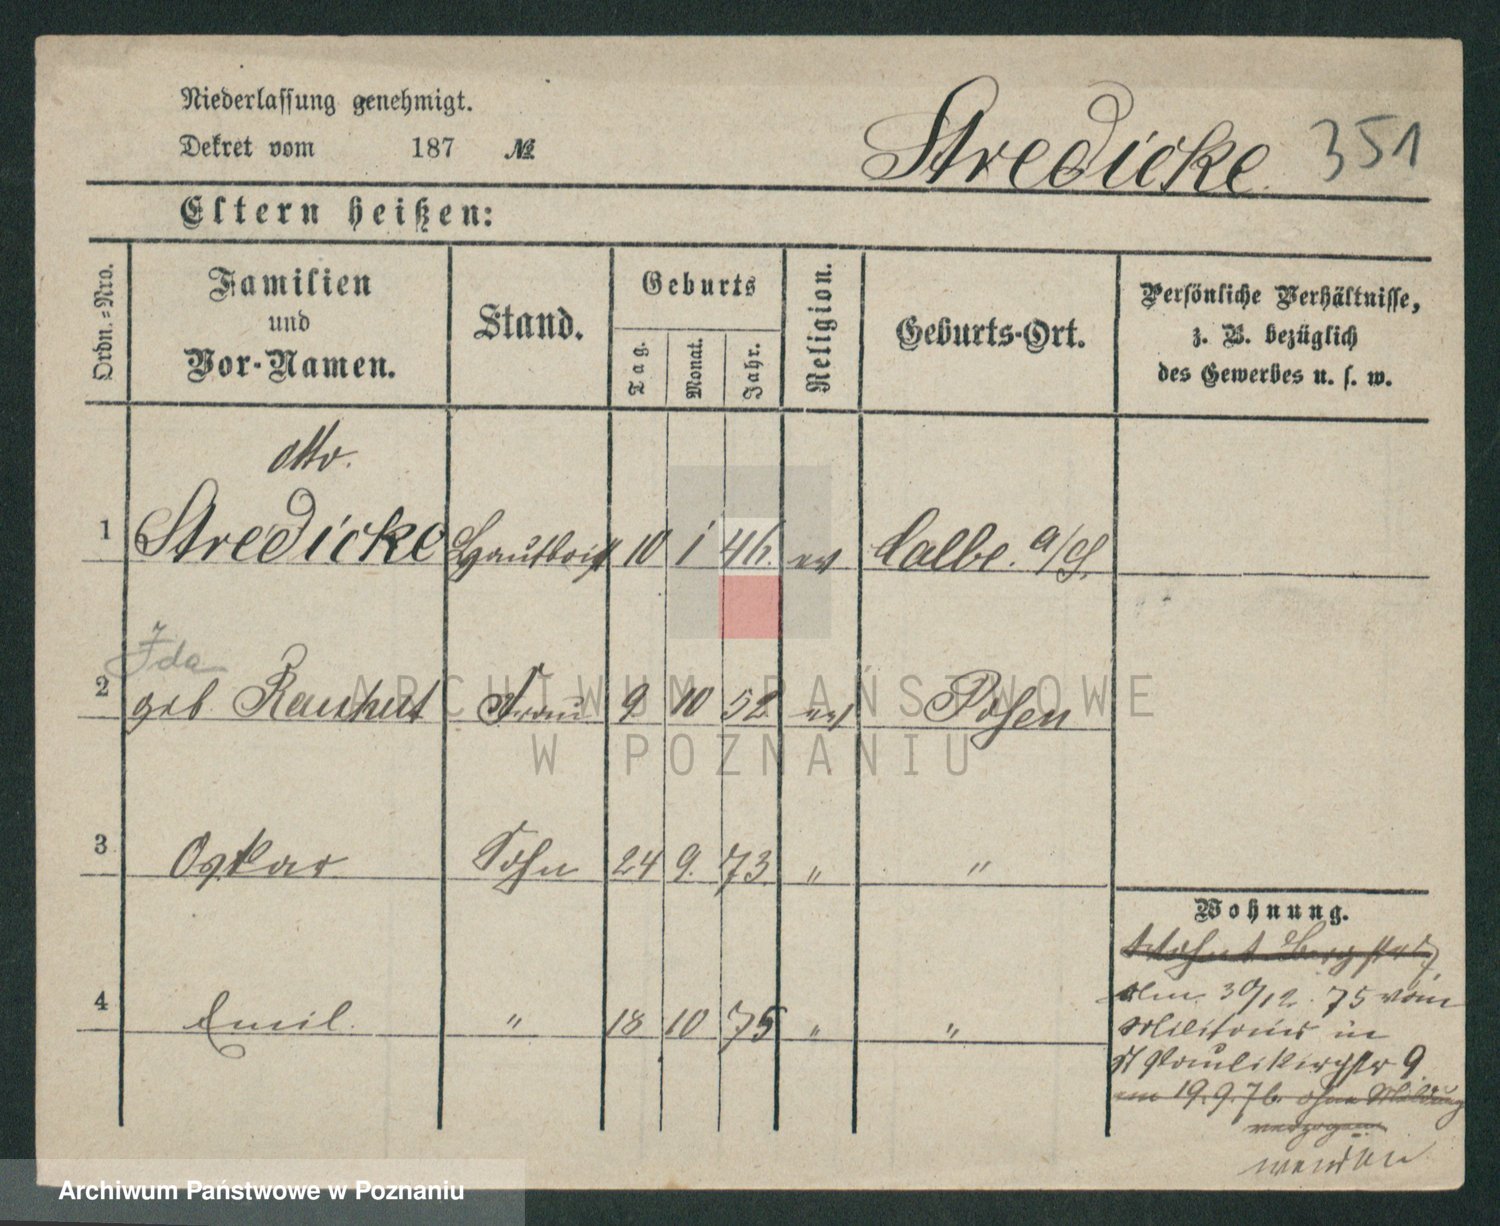 Niederlassung genehmigt.
Dekret vom 187 №
Stredicke 351
Eltern heißen:
Ordn.=Nro.
Familien
und
Vor-Namen.
Stand.
Geburts
Tag.
Monat.
Jahr.
Religion.
Geburts-Ort.
Persönliche Verhältnisse,
z. B. bezüglich
des Gewerbes u. s. w.
Otto.
1 Stredicke Hautboist 10 1 46. ev Calbe. a/S.
Ida
2 geb Rauhut Frau 9 10 52 ev Posen
3 Oskar Sohn 24 9. 73 " "
4 Emil. " 18 10 75 " "
Wohnung.
Wohnt Bergstr
30/12. 75 vom
Militair in
St Paulikirchstr 9
am 19. 9. 76. ohne Meldung
verzogen
ARCHIWUM PAŃSTWOWE
W POZNANIU
Archiwum Państwowe w Poznaniu